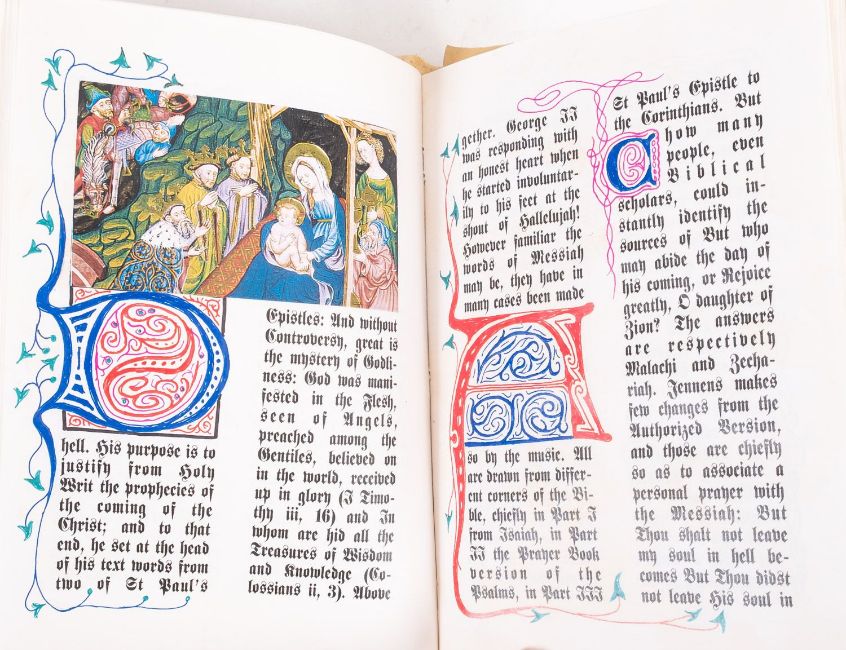 D
hell. His purpose is to
justify from Holy
Writ the prophecies of
the coming of the
Christ; and to that
end, he set at the head
of his text words from
two of St Paul's
Epistles: And without
Controversy, great is
the mystery of Godli-
ness: God was mani-
fested in the Flesh,
seen of Angels,
preached among the
Gentiles, believed on
in the world, received
up in glory (I Timo-
thy iii, 16) and In
whom are hid all the
Treasures of Wisdom
and Knowledge (Co-
lossians ii, 3). Above
gether. George II
was responding with
an honest heart when
he started involuntar-
ily to his feet at the
shout of Hallelujah!
However familiar the
words of Messiah
may be, they have in
many cases been made
A
so by the music. All
are drawn from differ-
ent corners of the Bi-
ble, chiefly in Part I
from Isaiah, in Part
II the Prayer Book
version of the
Psalms, in Part III
St Paul's Epistle to
the Corinthians. But
C how many
people, even
Biblical
scholars, could in-
stantly identify the
sources of But who
may abide the day of
his coming, or Rejoice
greatly, O daughter of
Zion? The answers
are respectively
Malachi and Zecha-
riah. Jennens makes
few changes from the
Authorized Version,
and those are chiefly
so as to associate a
personal prayer with
the Messiah: But
Thou shalt not leave
my soul in hell be-
comes But Thou didst
not leave His soul in